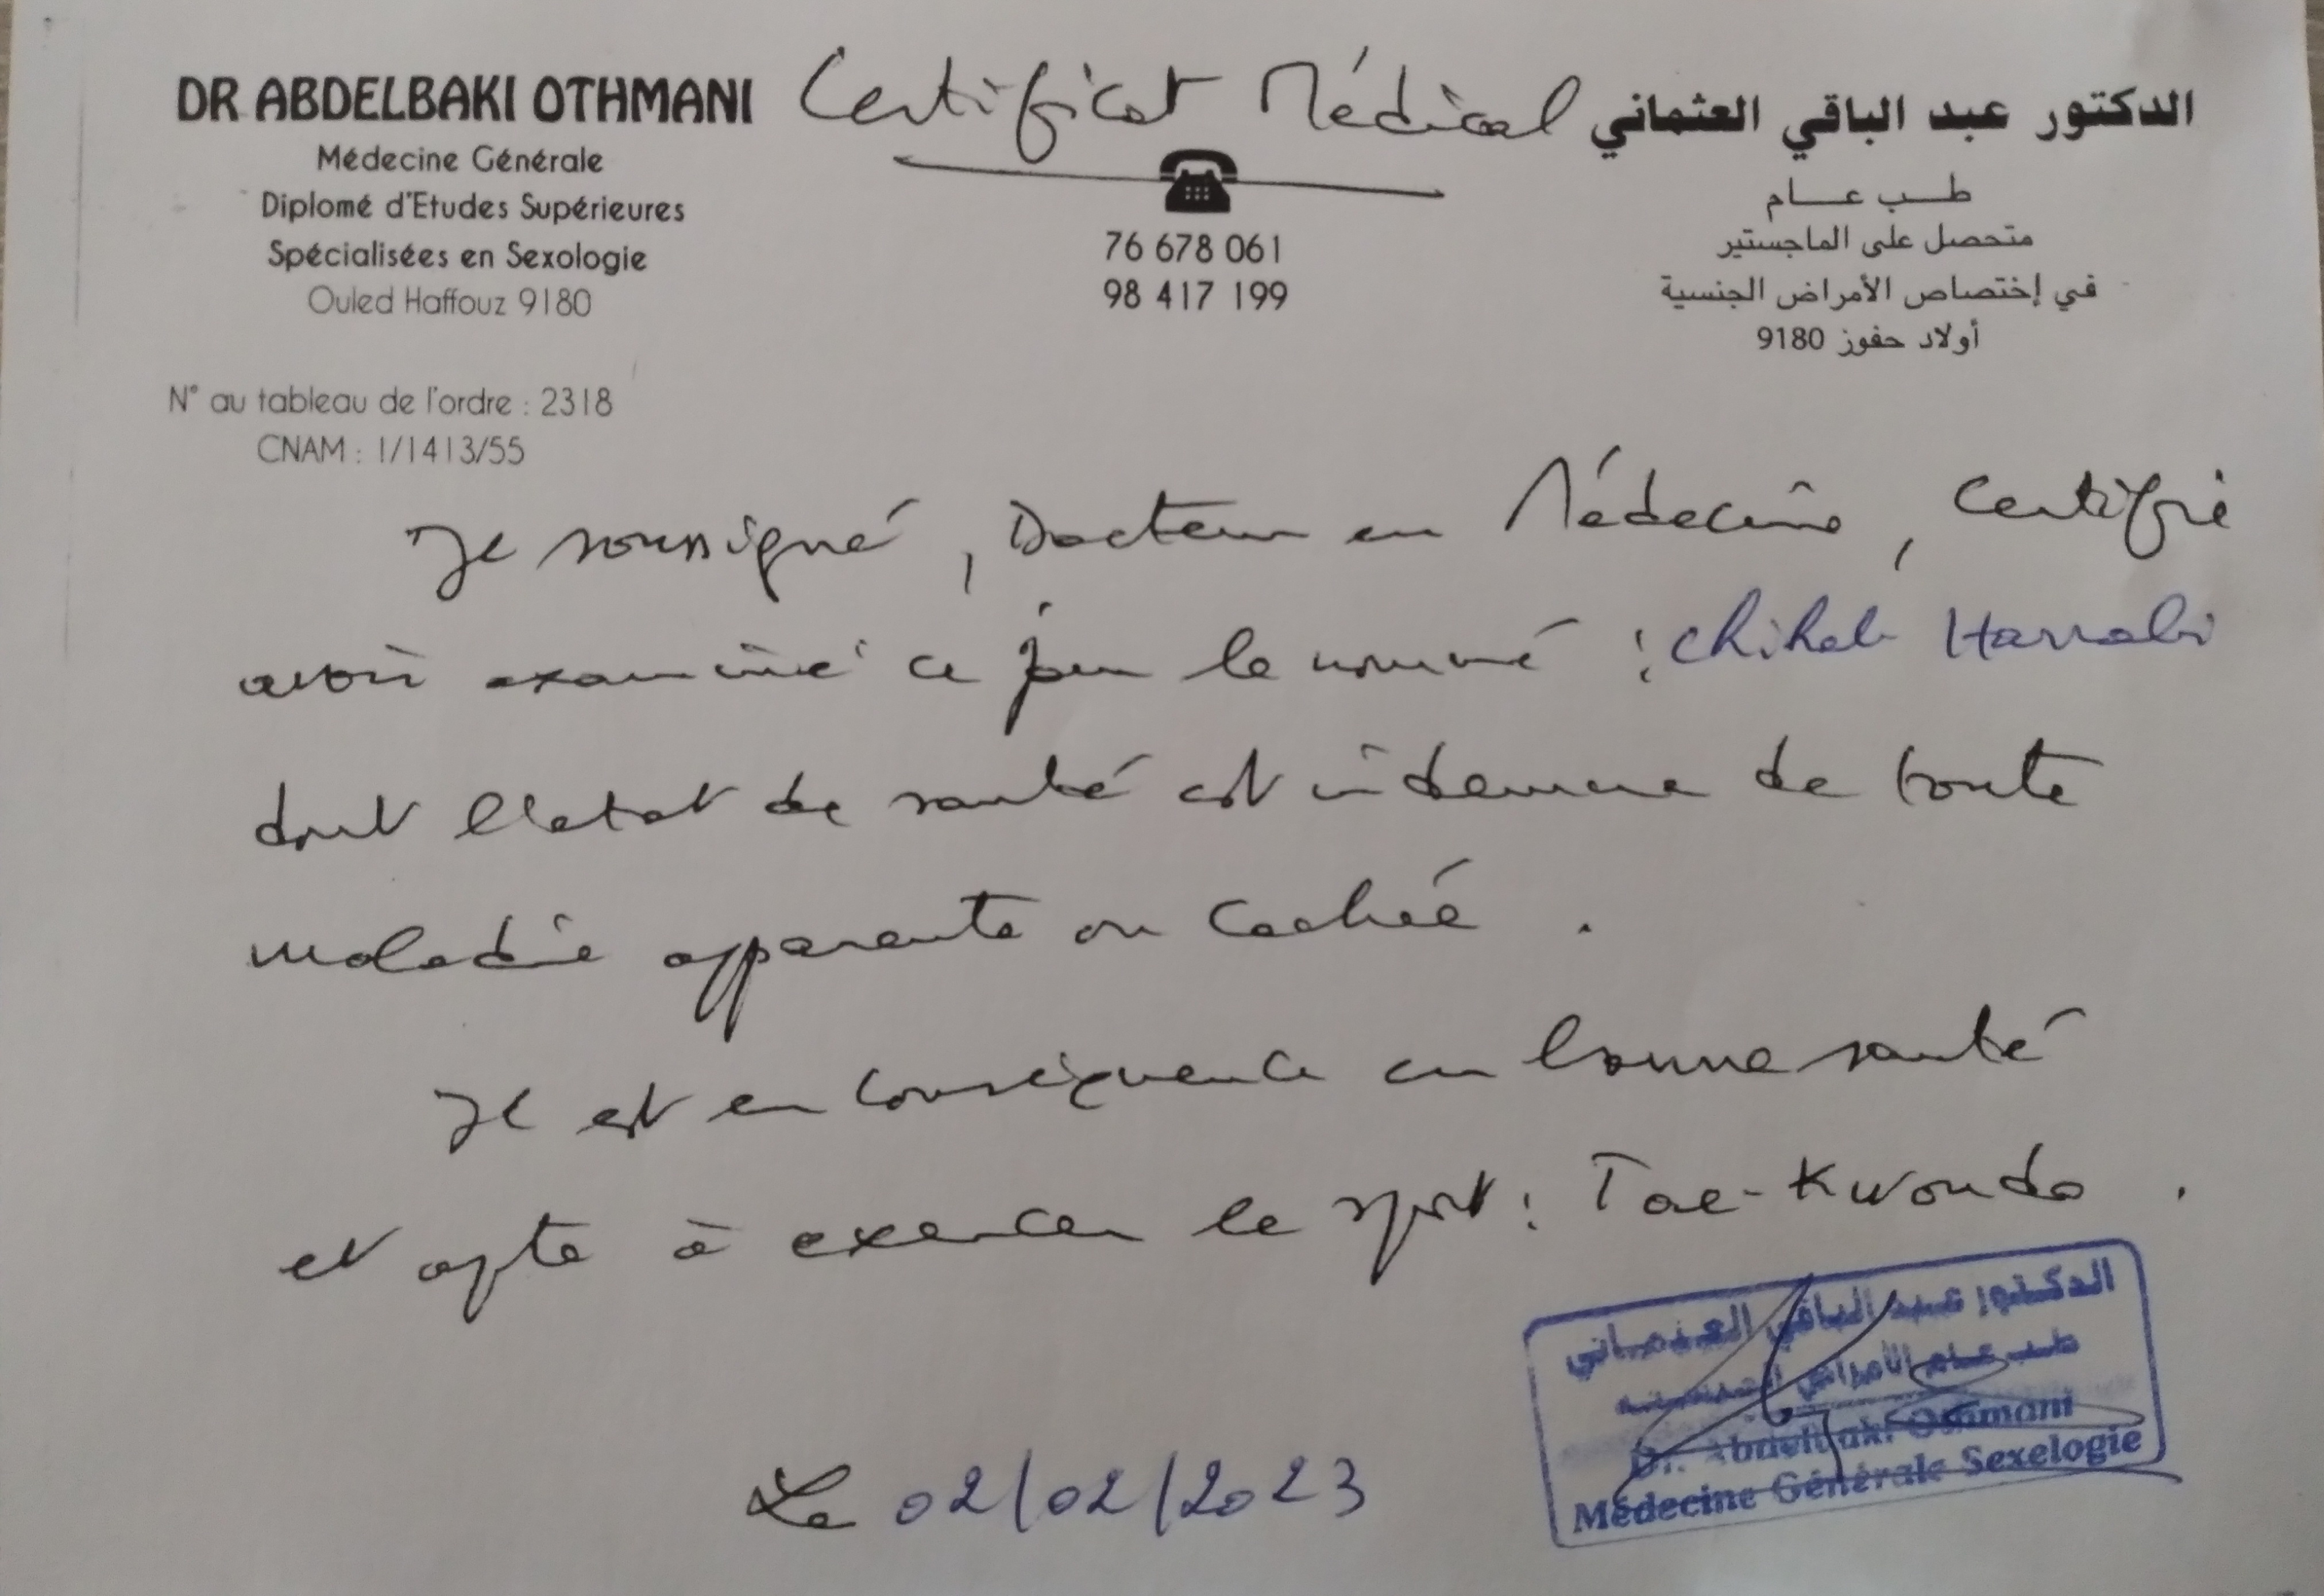 DR ABDELBAKI OTHMANI
Médecine Générale
Diplomé d'Etudes Supérieures
Spécialisées en Sexologie
Ouled Haffouz 9180
N° au tableau de l'ordre : 2318
CNAM : 1/1413/55
Certificat Médical
76 678 061
98 417 199
الدكتور عبد الباقي العثماني
طب عام
متحصل على الماجستير
في إختصاص الأمراض الجنسية
أولاد حفوز 9180
Je soussigné, Docteur en Médecine, Certifie
avoir examiné ce jour le nommé : Chiheb Harrabi
dont l'etat de santé est indemne de toute
maladie apparente ou cachée.
Il est en conséquence en bonne santé
et apte à exercer le sport : Tae-Kwondo.
الدكتور عبد الباقي العثماني
طب عام الأمراض الجنسية
Dr. Abdelbaki Othmani
Médecine Générale Sexelogie
Le 02/02/2023